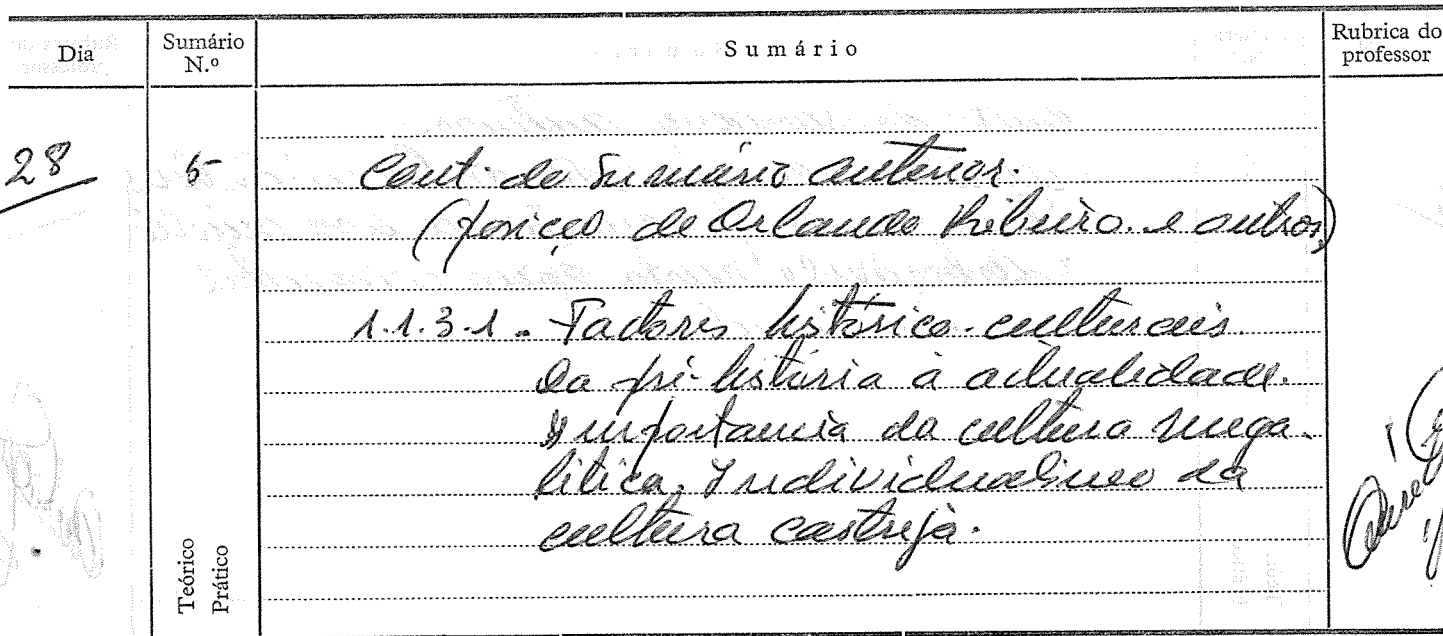 Dia
Sumário
N.º
Sumário
Rubrica do
professor
28
5
Cont. do Sumário anterior.
(posição de Orlando Ribeiro e outros)
1.1.3.1 - Factores histórico-culturais
Da pré-história à actualidade.
Importancia da cultura mega-
lítica. Individualismo da
cultura castreja.
Teórico
Prático